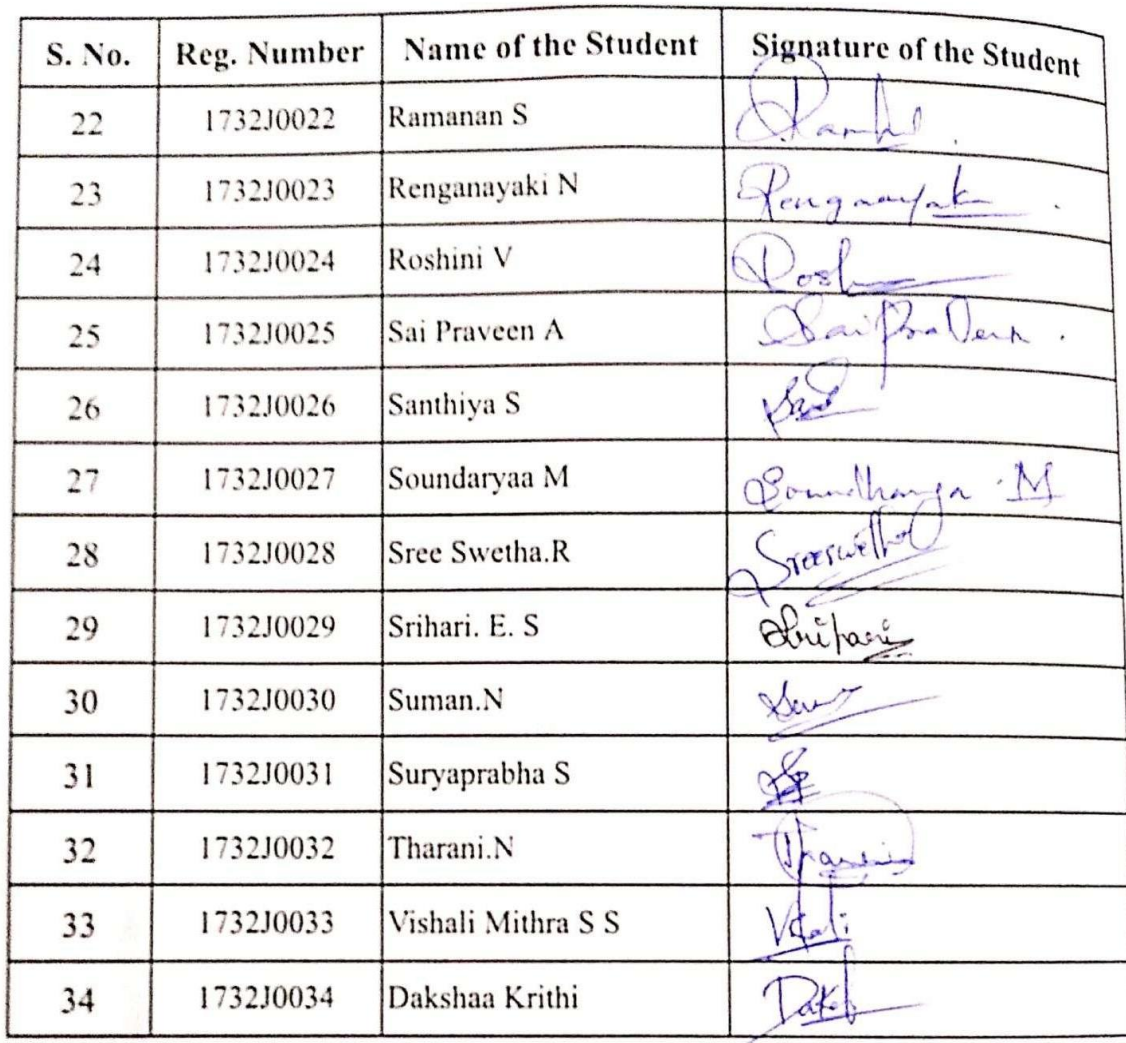 S. No. Reg. Number Name of the Student Signature of the Student
22 1732J0022 Ramanan S
23 1732J0023 Renganayaki N Renganayaki
24 1732J0024 Roshini V
25 1732J0025 Sai Praveen A Sai Praveen.
26 1732J0026 Santhiya S
27 1732J0027 Soundaryaa M M
28 1732J0028 Sree Swetha.R Sreeswetha
29 1732J0029 Srihari. E. S Srihari
30 1732J0030 Suman.N
31 1732J0031 Suryaprabha S
32 1732J0032 Tharani.N Tharani
33 1732J0033 Vishali Mithra S S
34 1732J0034 Dakshaa Krithi